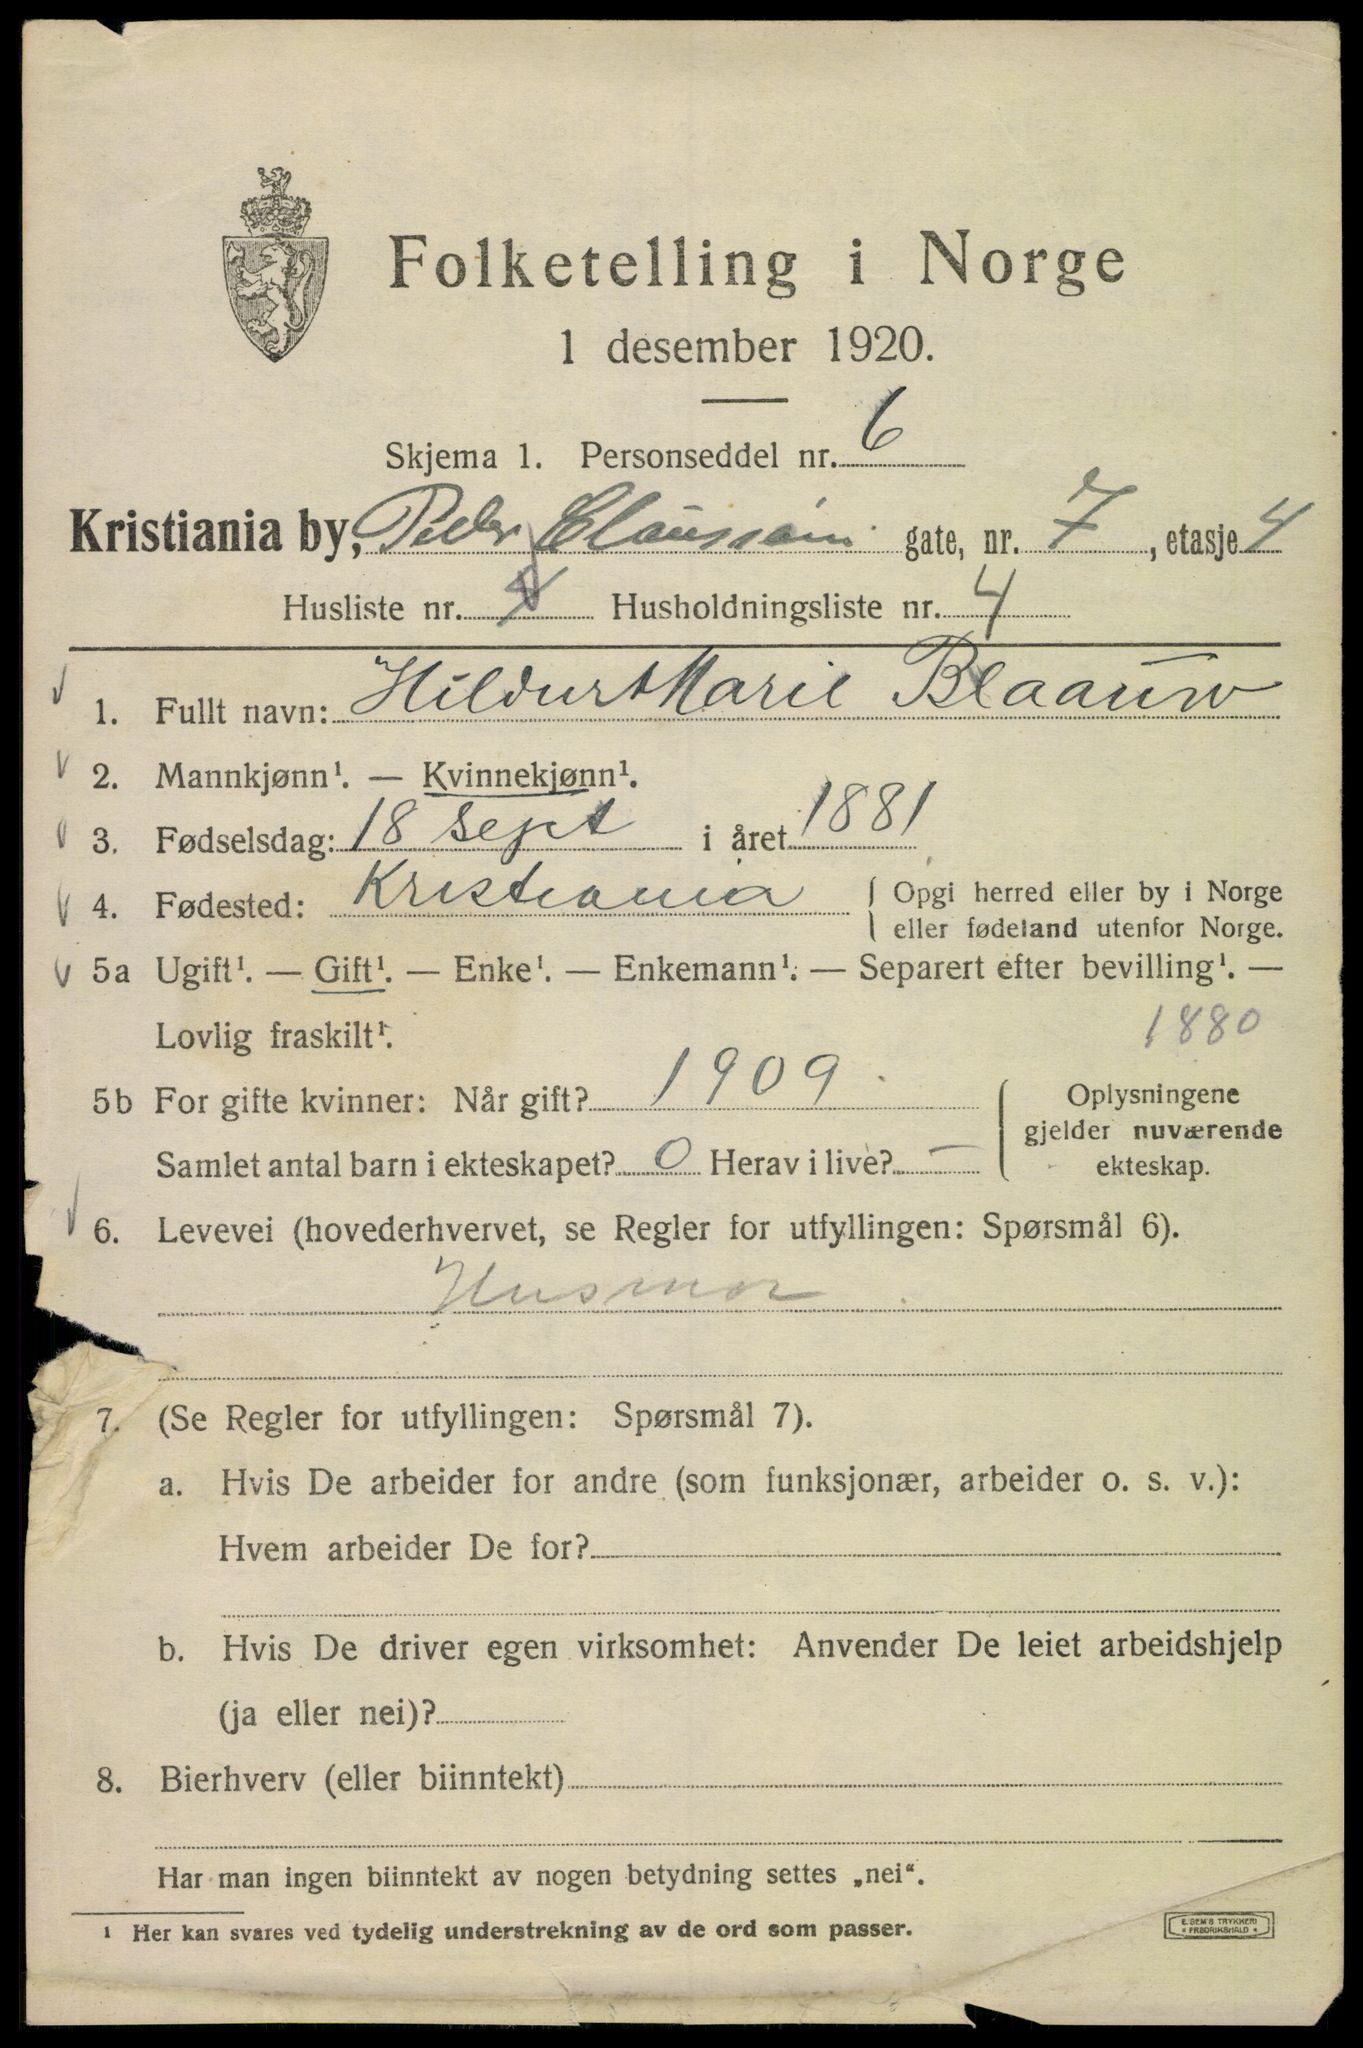 Folketelling i Norge
1 desember 1920.
Skjema 1. Personseddel nr. 6
Kristiania by, Peder Claussøn gate, nr. 7, etasje 4
Husliste nr. Husholdningsliste nr. 4
1. Fullt navn: Hildur Marie Blaauw
2. Mannkjønn¹. — Kvinnekjønn¹.
3. Fødselsdag: 18 sept i året 1881
4. Fødested: Kristiania { Opgi herred eller by i Norge
eller fødeland utenfor Norge.
5a Ugift¹. — Gift¹. — Enke¹. — Enkemann¹. — Separert efter bevilling¹. —
Lovlig fraskilt¹.
1880
5b For gifte kvinner: Når gift? 1909
Samlet antal barn i ekteskapet? 0 Herav i live? —
Oplysningene
gjelder nuværende
ekteskap.
6. Levevei (hovederhvervet, se Regler for utfyllingen: Spørsmål 6).
Husmor
7. (Se Regler for utfyllingen: Spørsmål 7).
a. Hvis De arbeider for andre (som funksjonær, arbeider o. s. v.):
Hvem arbeider De for?
b. Hvis De driver egen virksomhet: Anvender De leiet arbeidshjelp
(ja eller nei)?
8. Bierhverv (eller biinntekt)
Har man ingen biinntekt av nogen betydning settes „nei“.
¹ Her kan svares ved tydelig understrekning av de ord som passer.
E. SEM'S TRYKKERI
* FREDRIKSHALD *